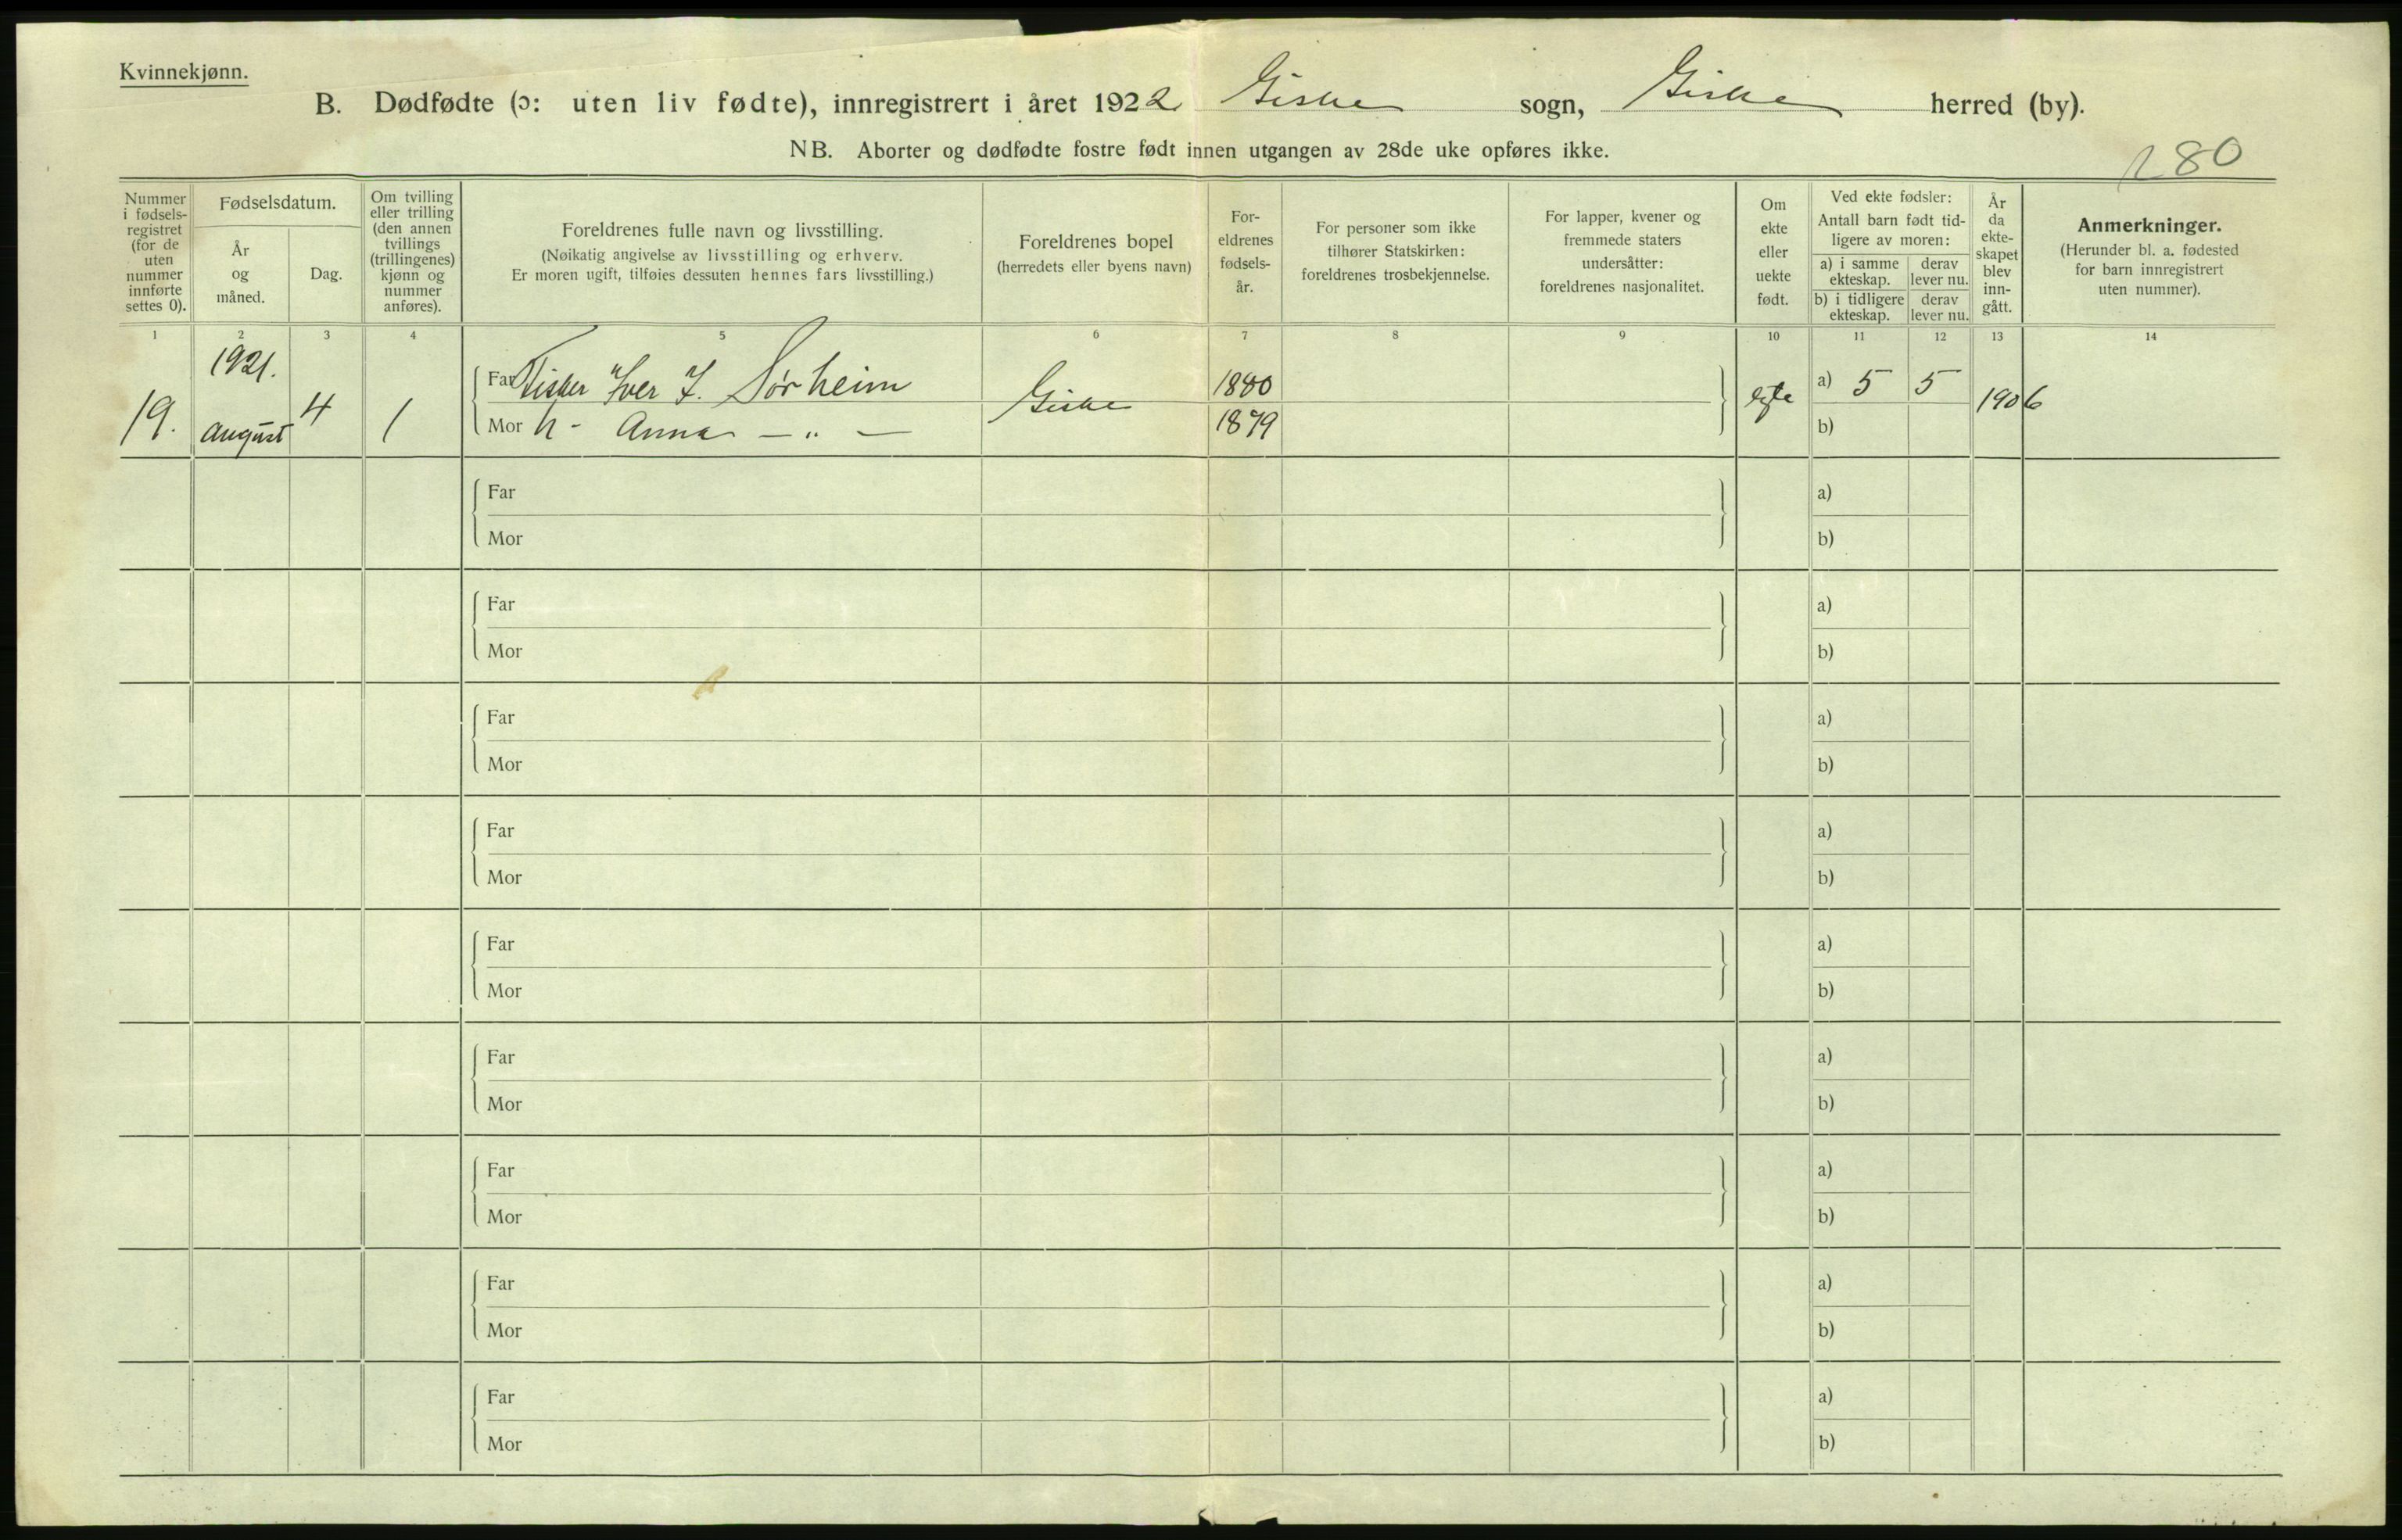 Kvinnekjønn.
B. Dødfødte (ɔ: uten liv fødte), innregistrert i året 1922 Giske sogn, Giske herred (by).
NB. Aborter og dødfødte fostre født innen utgangen av 28de uke opføres ikke.
180
Nummer
i fødsels-
registret
(for de
uten
nummer
innførte
settes 0).
Fødselsdatum.
År
og
måned.
Dag.
Om tvilling
eller trilling
(den annen
tvillings
(trillingenes)
kjønn og
nummer
anføres).
Foreldrenes fulle navn og livsstilling.
(Nøikatig angivelse av livsstilling og erhverv.
Er moren ugift, tilføies dessuten hennes fars livsstilling.)
Foreldrenes bopel
(herredets eller byens navn)
For-
eldrenes
fødsels-
år.
For personer som ikke
tilhører Statskirken:
foreldrenes trosbekjennelse.
For lapper, kvener og
fremmede staters
undersåtter:
foreldrenes nasjonalitet.
Om
ekte
eller
uekte
født.
Ved ekte fødsler:
Antall barn født tid-
ligere av moren:
a) i samme
ekteskap.
derav
lever nu.
b) i tidligere
ekteskap.
derav
lever nu.
År
da
ekte-
skapet
blev
inn-
gått.
Anmerkninger.
(Herunder bl. a. fødested
for barn innregistrert
uten nummer).
1 2 3 4 5 6 7 8 9 10 11 12 13 14
1921.
19. August 4 1
Far Fisker Iver I. Sørheim
Mor h - Anna - " -
Giske
1880
1879
a) 5 5
b)
1906
Far a)
Mor b)
Far a)
Mor b)
Far a)
Mor b)
Far a)
Mor b)
Far a)
Mor b)
Far a)
Mor b)
Far a)
Mor b)
Far a)
Mor b)
Far a)
Mor b)